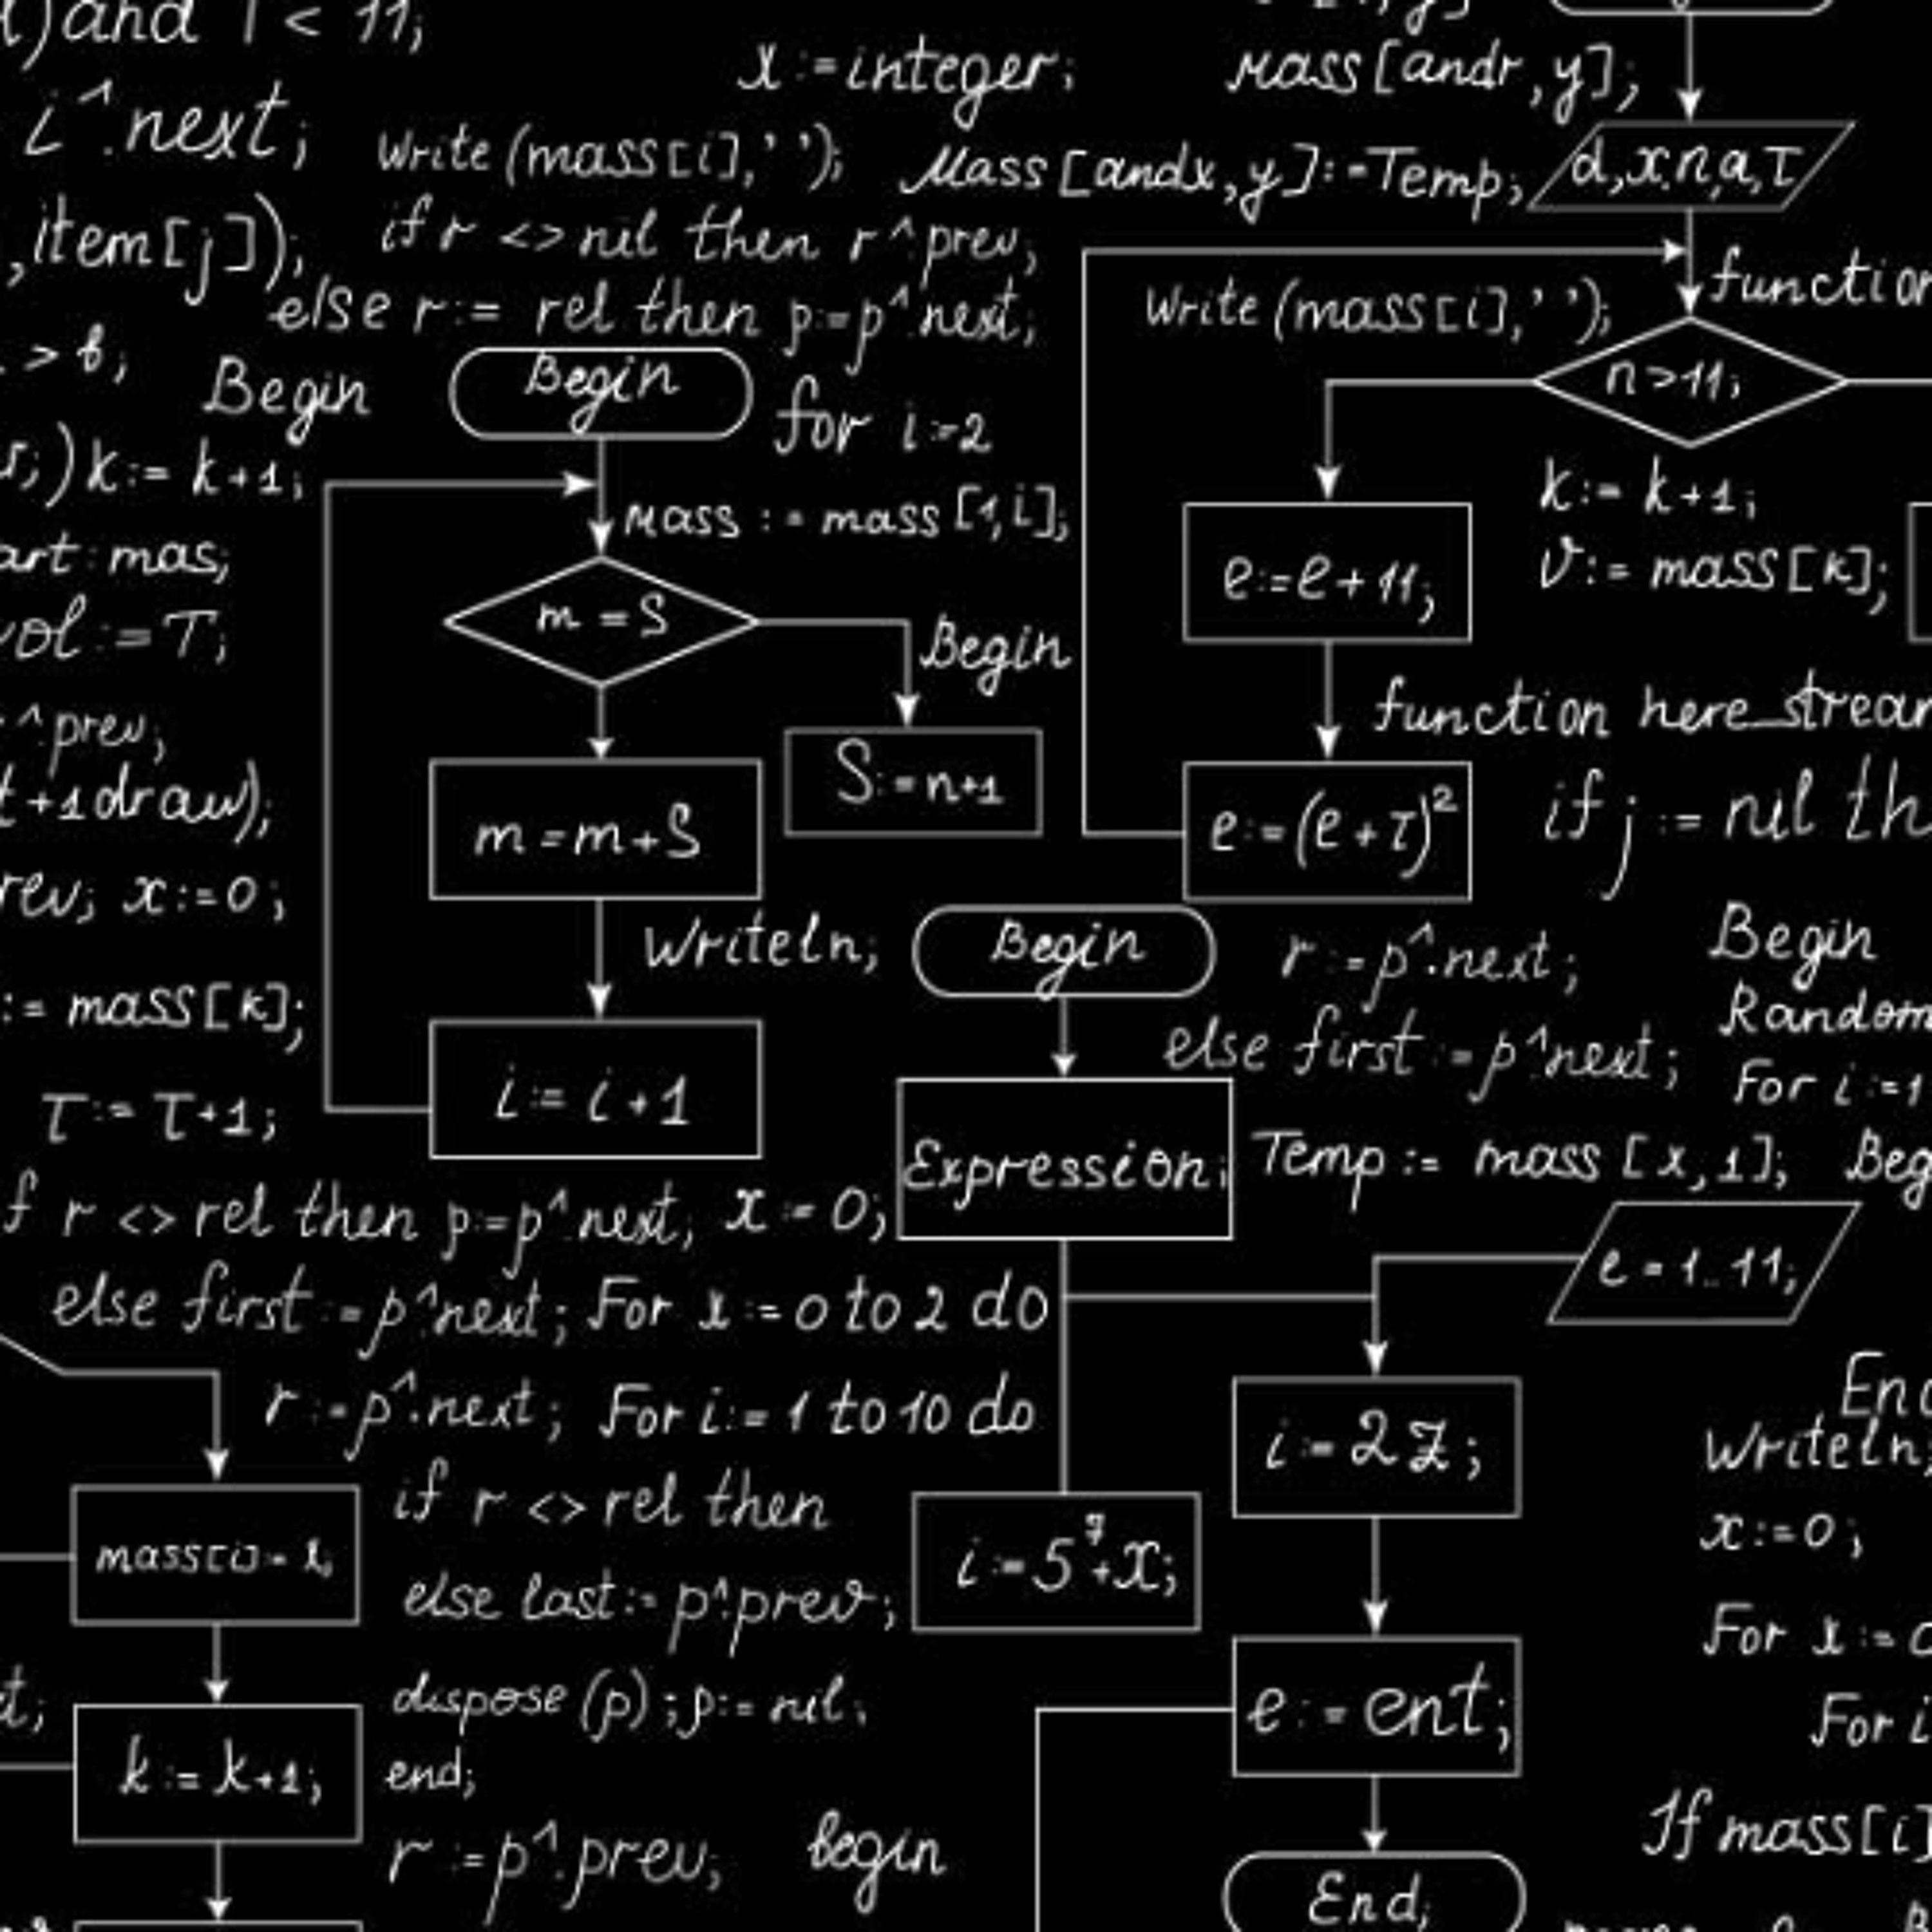 and 1 < 11;
x:=integer;
mass[andr,y];
i^.next;
Write(mass[i],' ');
Mass[andx,y]:=Temp;
d,x,n,a,τ
,item[j]);
if r <> nil then r^prev;
else r:= rel then p:=p^.next;
Write(mass[i],' ');
function
> b;
Begin
Begin
for i:=2
n>11;
k:= k+1;
mass := mass [1,i];
k:= k+1;
e:=e+11;
v:= mass[k];
mas;
m = S
Begin
:= T;
function here_
^.prev;
S:=n+1
+1draw);
m=m+S
e:=(e+τ)²
if j := nil
x:=0;
Writeln;
Begin
r:=p^.next;
Begin
:= mass[k];
else first:=p^next;
Random
For i:=1
τ:= τ+1;
i:= i+1
Expression;
Temp:= mass [x,1];
r <> rel then p:=p^.next; x:=0;
e=1..11;
else first:=p^next; For x:=0 to 2 do
r:=p^.next; For i:= 1 to 10 do
i:=2z;
Writeln;
if r <> rel then
mass[i]:=
i:=5⁷+x;
x:=0;
else last:= p^.prev;
For x:=
dispose(p); p:= nil;
e:=ent;
For i
k:=k+1;
end;
r:=p^.prev;
begin
If mass[i]
End;